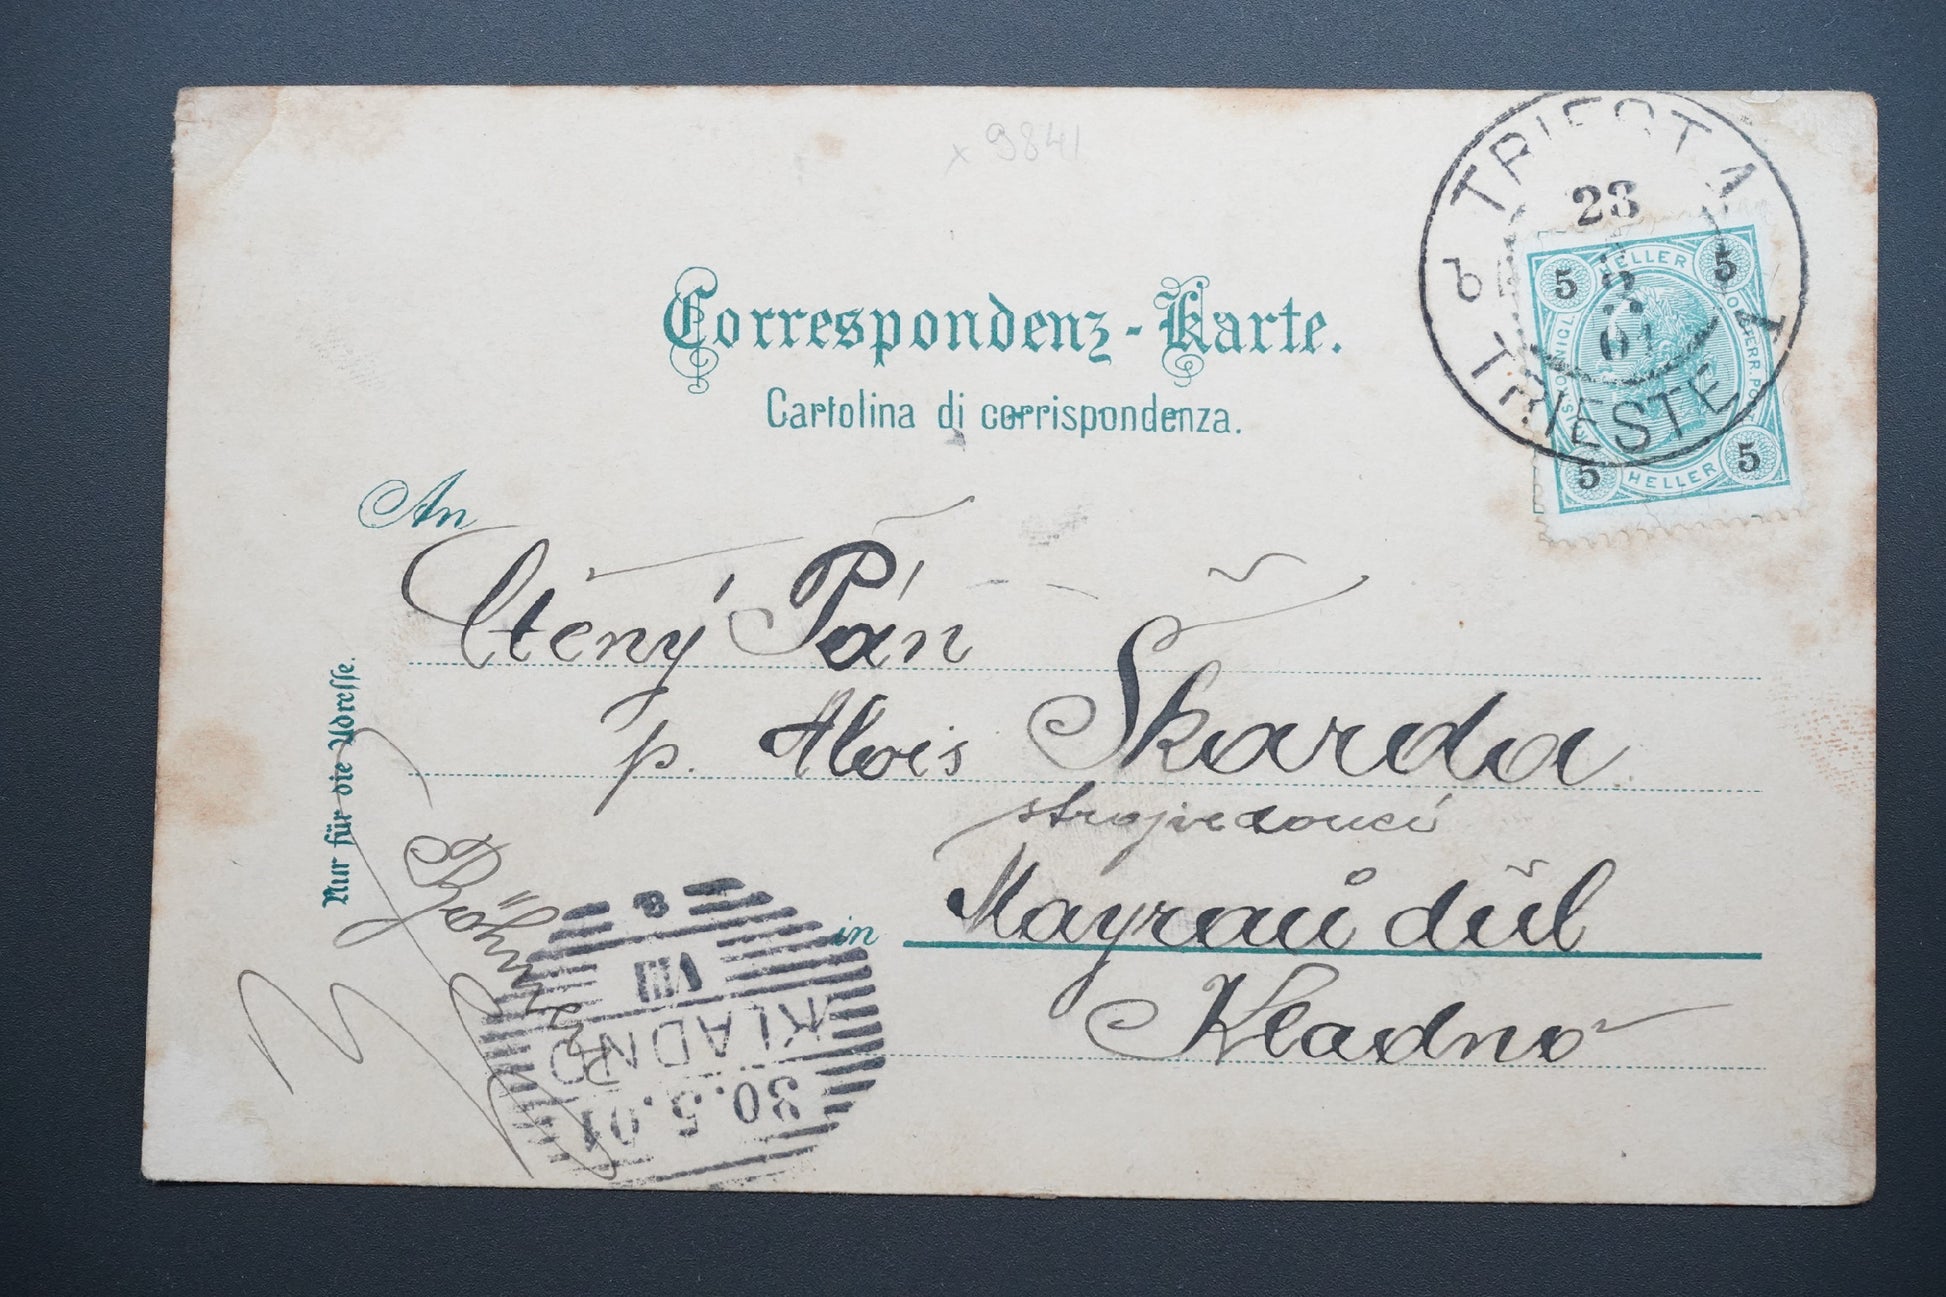 x 9841
TRIEST 1
23
5
01
TRIESTE 1
b
5 HELLER 5
5 HELLER 5
Correspondenz-Karte.
Cartolina di corrispondenza.
An
Ctěný Pán
p. Alois Škarda
strojvedoucí
Mayrau důl
in
Kladno
Nur für die Adresse.
8
VIII
KLADNO
30.5.01